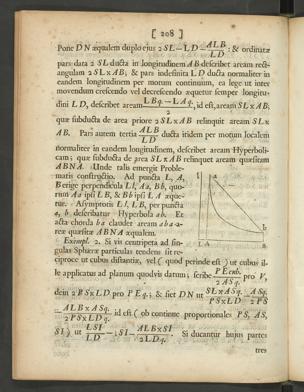 [ 208 ]
Pone DN æqualem duplo ejus 2 SL − LD − ALB/LD: & ordinatæ
pars data 2 SL ducta in longitudinem AB describet aream recti-
angulam 2 SL×AB; & pars indefinita LD ducta normaliter in
eandem longitudinem per motum continuum, ea lege ut inter
movendum crescendo vel decrescendo æquetur semper longitu-
dini LD, describet aream LBq. − LAq./2, id est, aream SL×AB;
quæ subducta de area priore 2 SL×AB relinquit aream SL×
AB. Pars autem tertia ALB/LD ducta itidem per motum localem
normaliter in eandem longitudinem, describet aream Hyperboli-
cam; quæ subducta de area SL×AB relinquet aream quæsitam
ABNA. Unde talis emergit Proble-
matis constructio. Ad puncta L, A,
B erige perpendicula Ll, Aa, Bb, quo-
rum Aa ipsi LB, & Bb ipsi LA æque-
tur. Asymptotis Ll, LB, per puncta
a, b describatur Hyperbola ab. Et
acta chorda ba claudet aream aba a-
reæ quæsitæ ABNA æqualem.
l
a
b
L A B
Exempl. 2. Si vis centripeta ad sin-
gulas Sphæræ particulas tendens sit re-
ciproce ut cubus distantiæ, vel (quod perinde est) ut cubus il-
le applicatus ad planum quodvis datum; scribe PE cub./2 ASq. pro V,
dein 2 PS×LD pro PEq.; & fiet DN ut SL×ASq./PS×LD − ASq./2 PS
− ALB×ASq./2 PS×LDq. id est (ob continue proportionales PS, AS,
SI) ut LSI/LD − ½SI − ALB×SI/2 LDq. Si ducantur hujus partes
tres